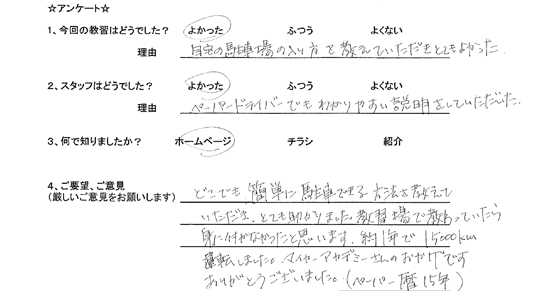 ☆アンケート☆
1、今回の教習はどうでした？ よかった ふつう よくない
理由 自宅の駐車場の入り方を教えていただきとてもよかった。
2、スタッフはどうでした？ よかった ふつう よくない
理由 ペーパードライバーでもわかりやすい説明をしていただいた。
3、何で知りましたか？ ホームページ チラシ 紹介
4、ご要望、ご意見
(厳しいご意見をお願いします)
どこでも簡単に駐車できる方法を教えて
いただき、とても助かりました。教習場で教わっていたら
身に付かなかったと思います。約1年で15000km
運転しました。マイカーアカデミーさんのおかげです
ありがとうございました。(ペーパー暦15年)